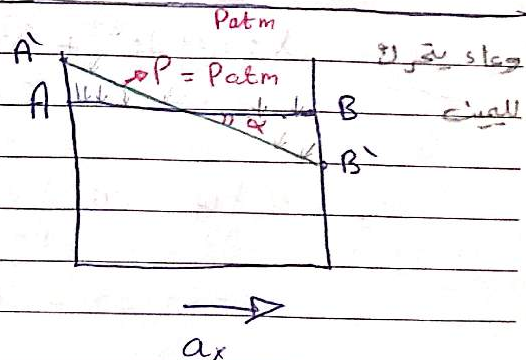 Patm
A`
P = Patm
وعاء يتحرك
A
B
لليمين
α
B`
aₓ